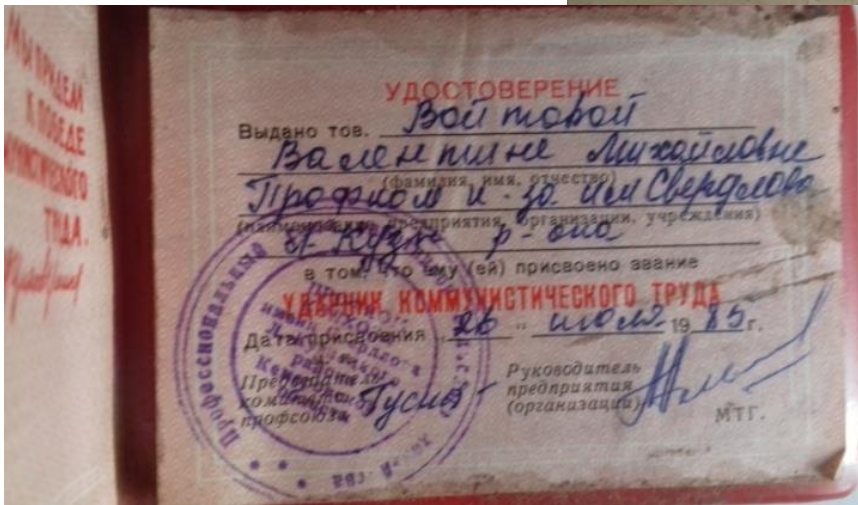 МЫ ПРИДЕМ
К ПОБЕДЕ
КОММУНИСТИЧЕСКОГО
ТРУДА.
УДОСТОВЕРЕНИЕ
Выдано тов. Войтовой
Валентине Михайловне
(фамилия, имя, отчество)
Профком к-за им Свердлова
(наименование предприятия, организации, учреждения)
Л-Кузн р-она
в том, что ему (ей) присвоено звание
УДАРНИК КОММУНИСТИЧЕСКОГО ТРУДА
Дата присвоения „26" июля 1985г.
Председатель
комитета
профсоюза
Руководитель
предприятия
(организации)
МТГ.
Профессиональный